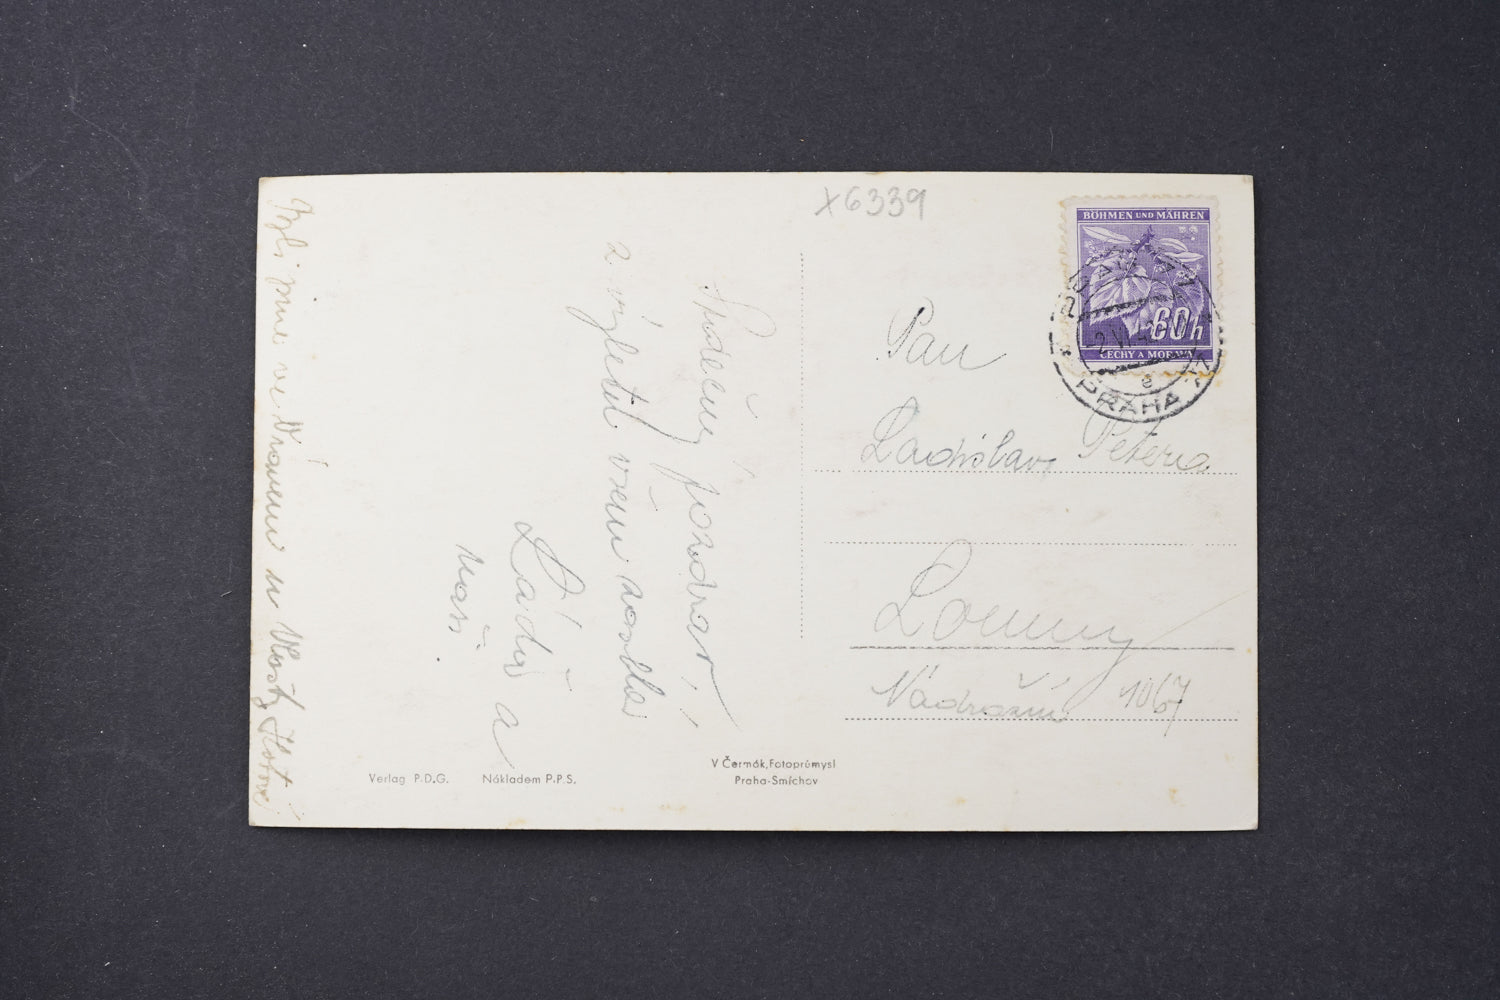 X6339
BÖHMEN UND MÄHREN
60h
ČECHY A MORAVA
PRAHA
Pan
Ladislav Peterka
Louny
Nádražní 1067
Srdečný pozdrav
z výletu všem zasílá
Láďa a
naši.
Byli jsme ve u Vlasty
V Čermák, Fotoprůmysl
Praha-Smíchov
Verlag P.D.G. Nákladem P.P.S.